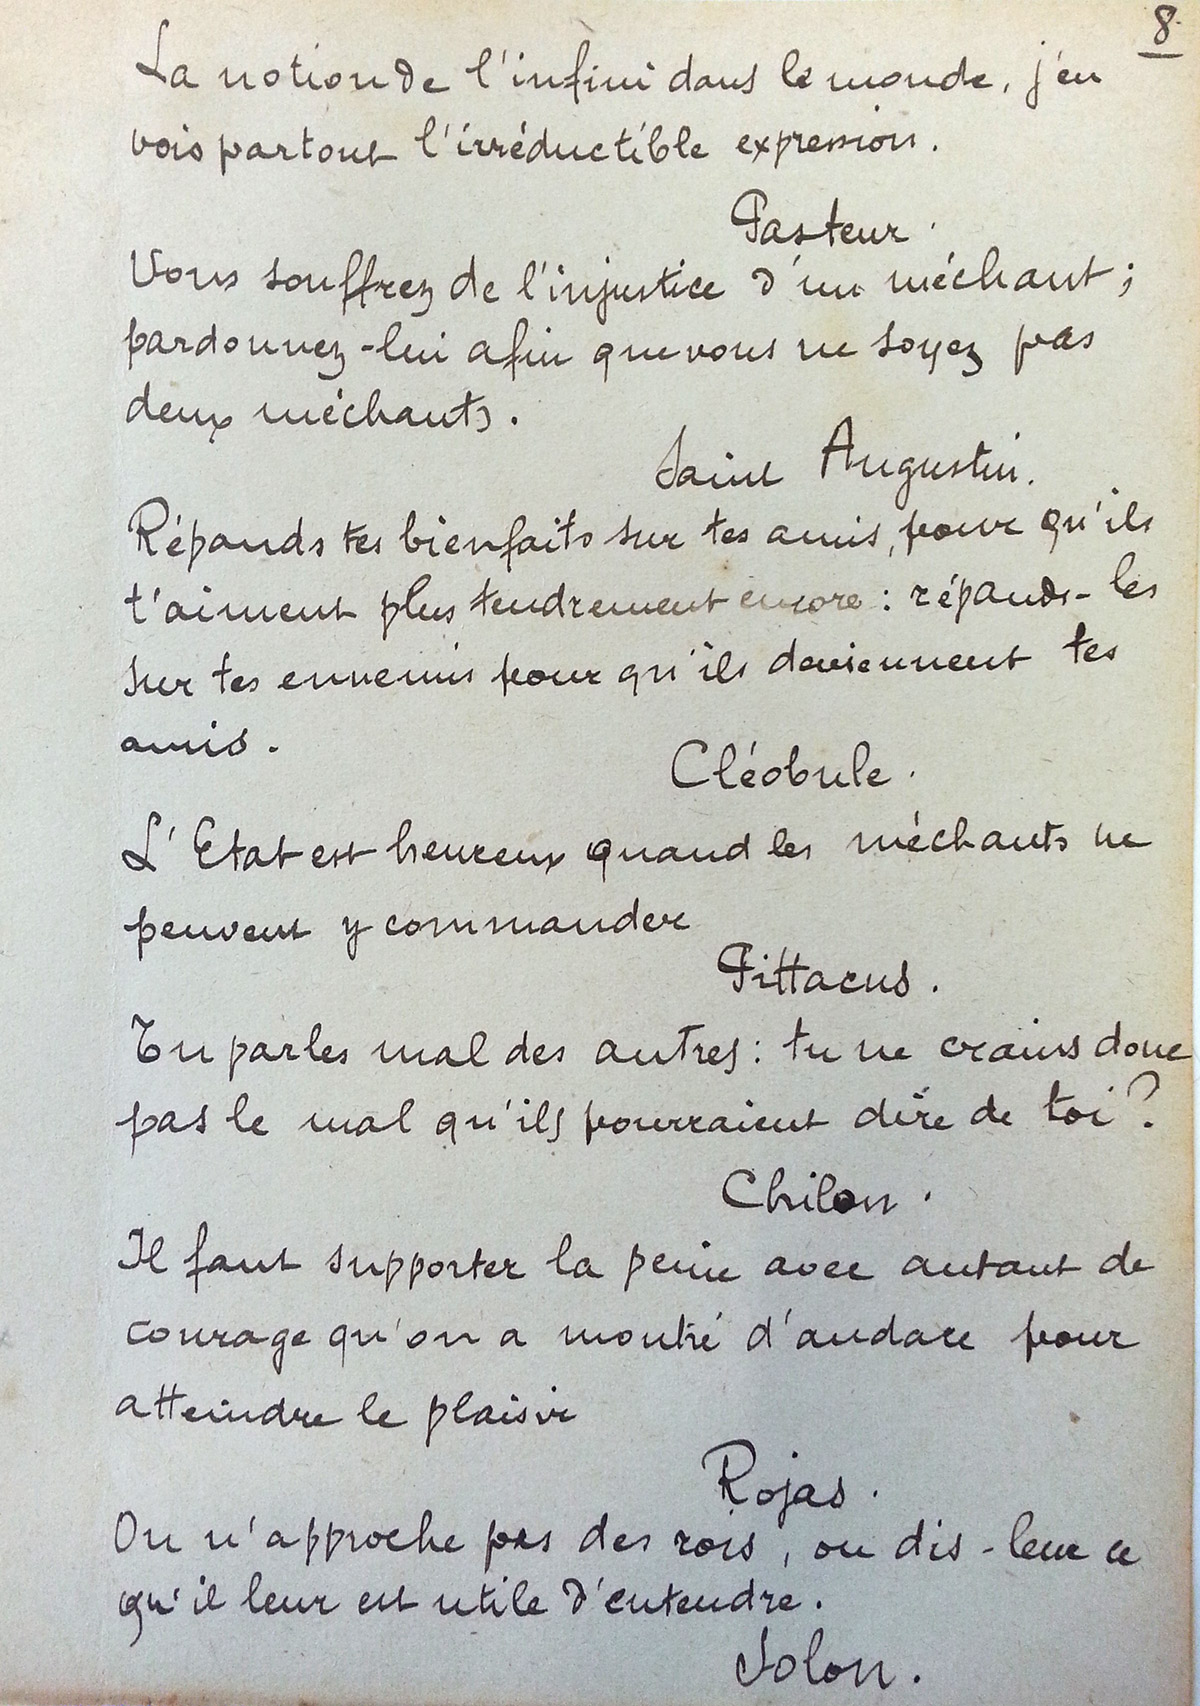 8.
La notion de l'infini dans le monde, j'en
vois partout l'irréductible expression.
Pasteur.
Vous souffrez de l'injustice d'un méchant;
pardonnez-lui afin que vous ne soyez pas
deux méchants.
Saint Augustin.
Répands tes bienfaits sur tes amis, pour qu'ils
t'aiment plus tendrement encore : répands-les
sur tes ennemis pour qu'ils deviennent tes
amis.
Cléobule.
L'Etat est heureux quand les méchants ne
peuvent y commander
Pittacus.
Tu parles mal des autres : tu ne crains donc
pas le mal qu'ils pourraient dire de toi ?
Chilon.
Il faut supporter la peine avec autant de
courage qu'on a montré d'audace pour
atteindre le plaisir
Rojas.
On n'approche pas des rois, ou dis-leur ce
qu'il leur est utile d'entendre.
Solon.